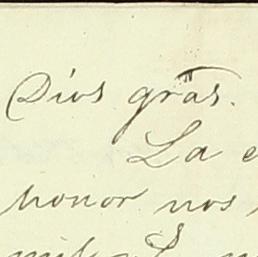 Dios grās.
La e
honor nos